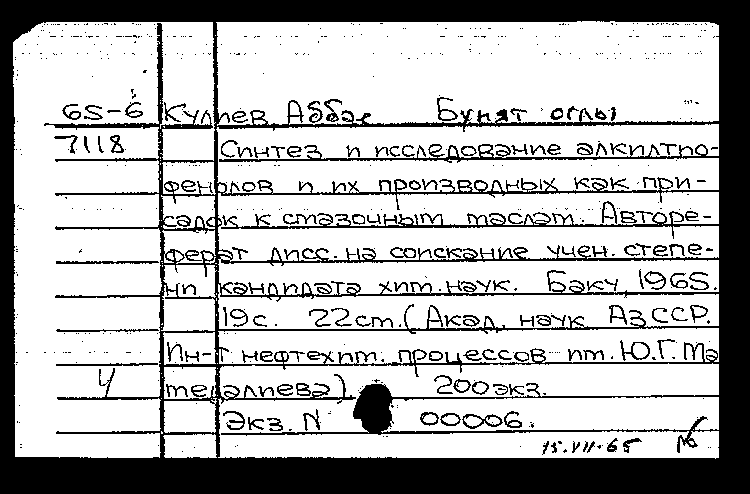 65-6 Кулиев, Аббас Бунят оглы
7118 Синтез и исследование алкилтио-
фенолов и их производных как при-
садок к смазочным маслам. Авторе-
ферат дисс. на соискание учен. степе-
ни кандидата хим. наук. Баку, 1965.
19с. 22см. (Акад. наук АзССР.
Ин-т нефтехим. процессов им. Ю.Г. Ма
4 медалиева). 200экз.
Экз. N 00006.
15.VII-65